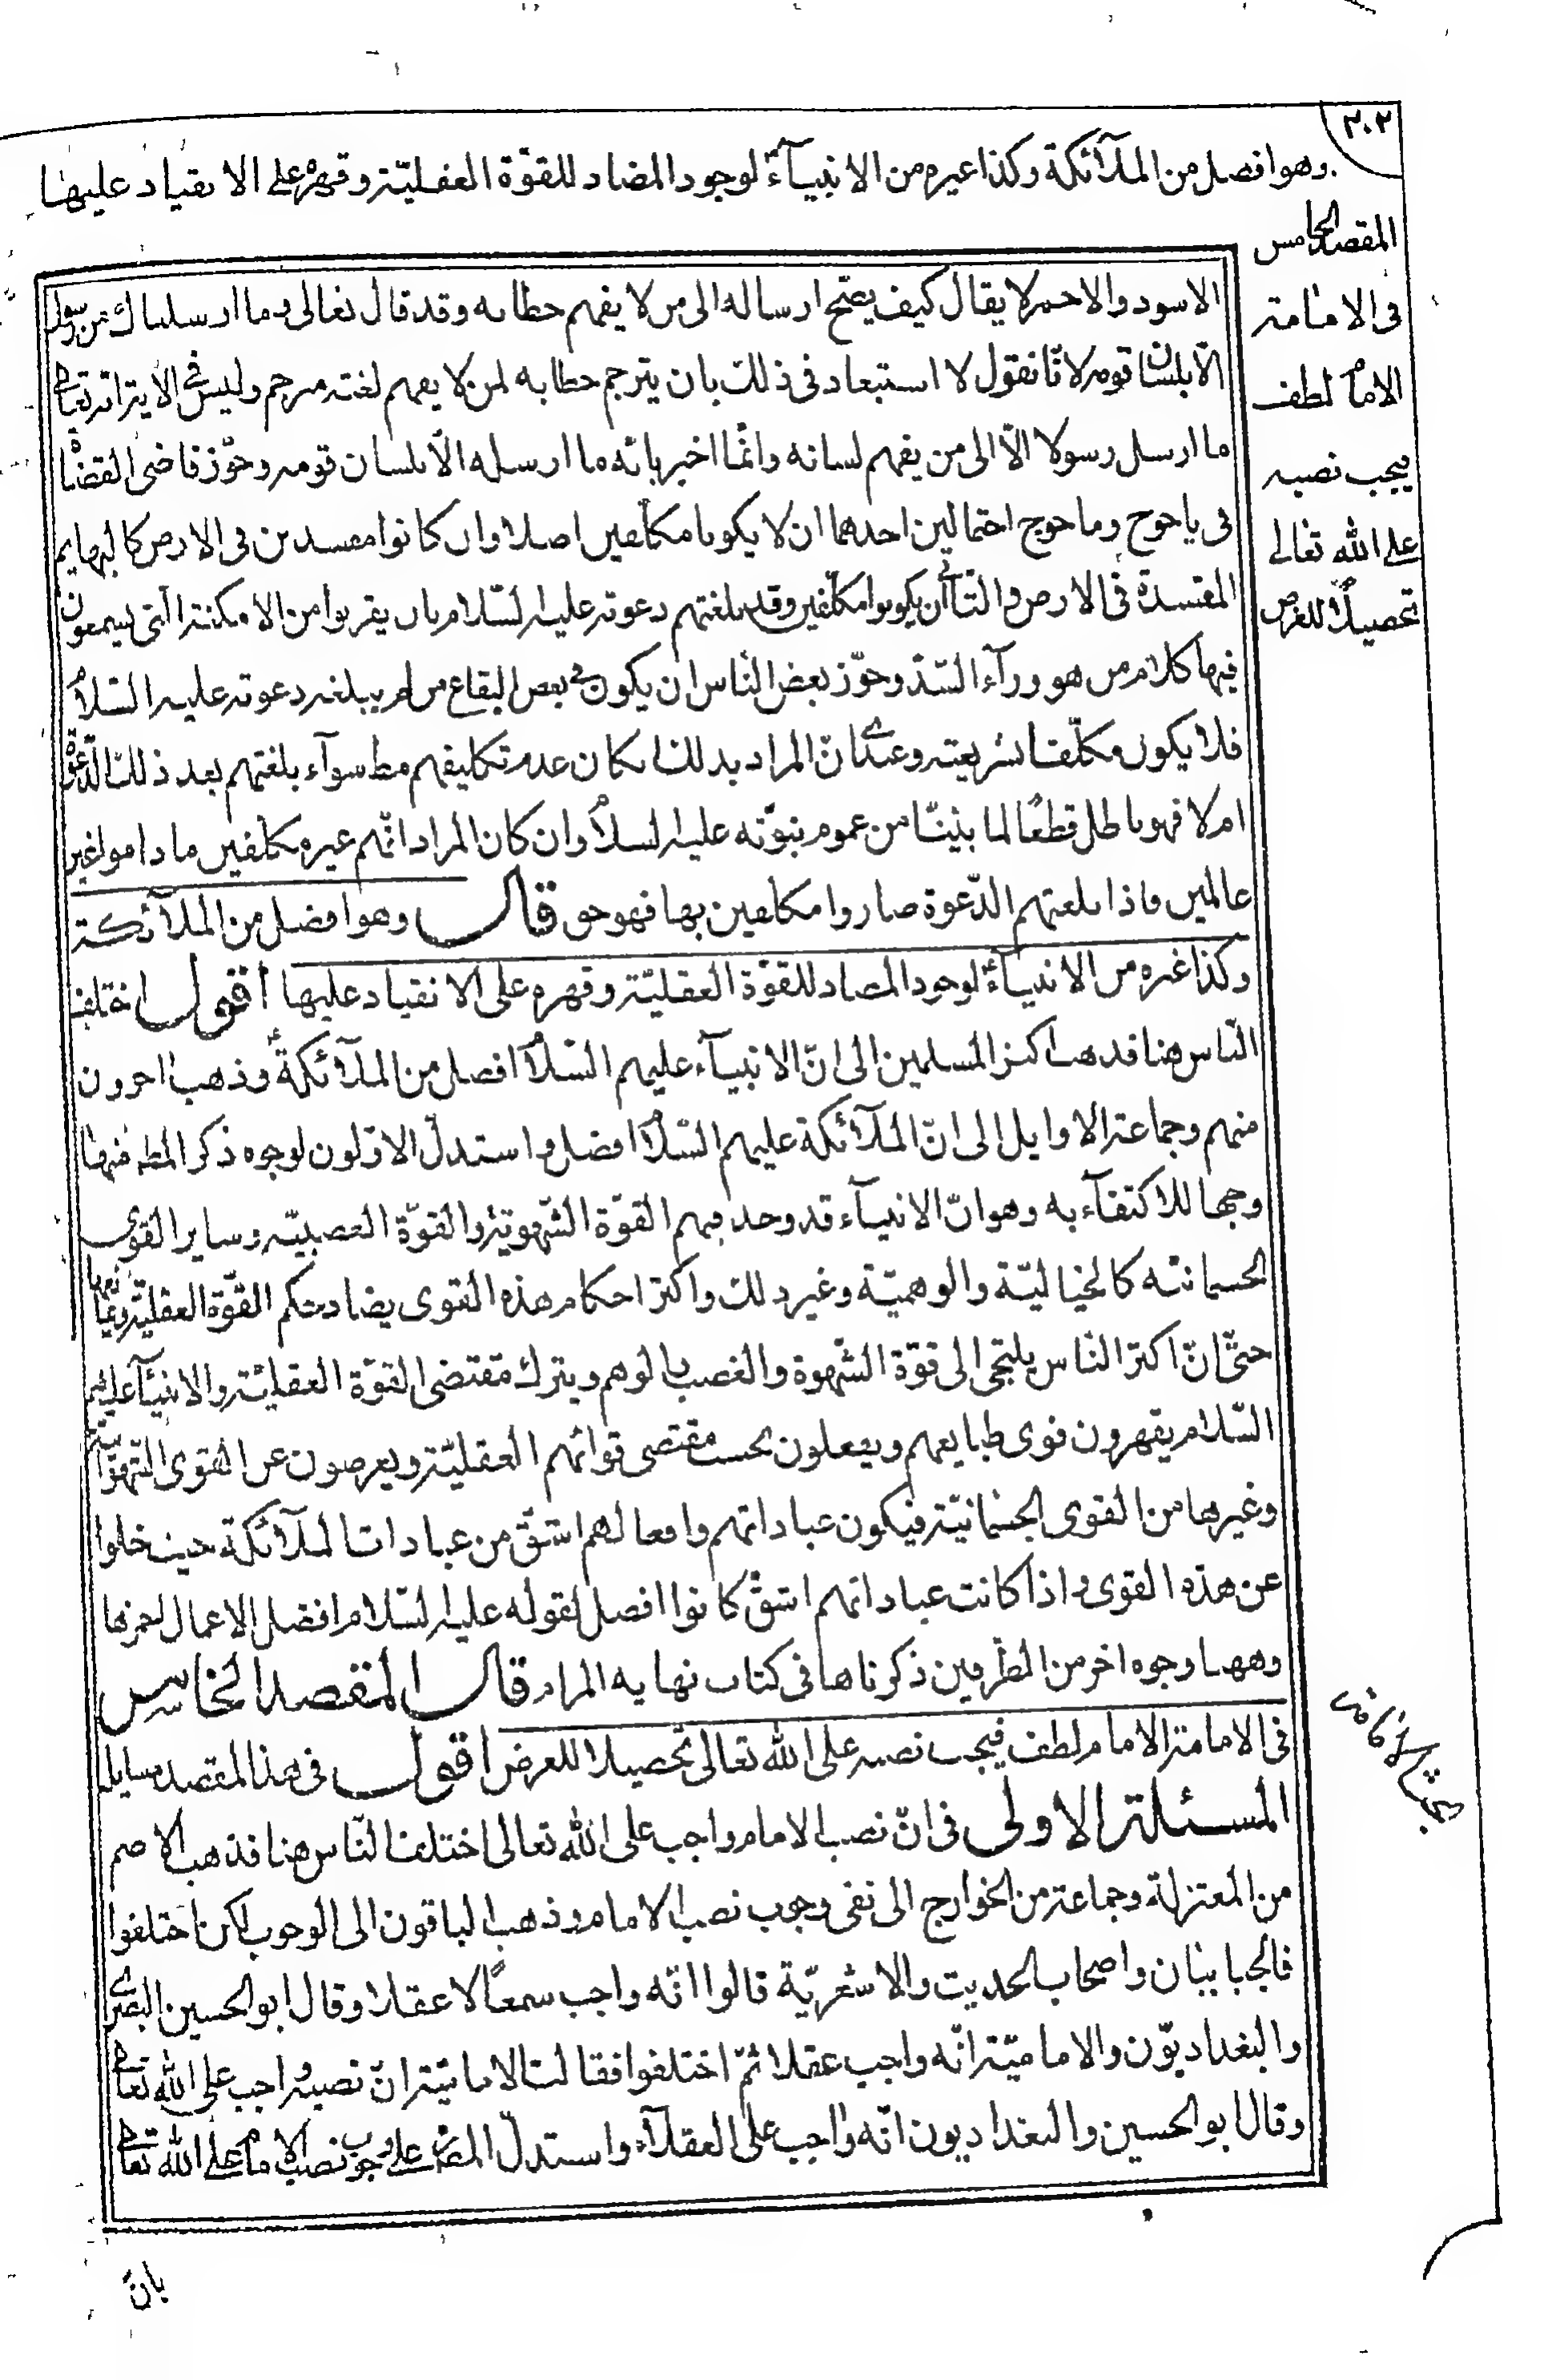 ٣٠٢
وهو افضل من الملآئكة وكذا غيره من الانبيآء لوجود المضاد للقوّة العقليّة وقهره على الانقياد عليها
المقصد الخامس
فى الامامة
الامام لطف
فيجب نصبه
على الله تعالى
تحصيلاً للغرض
الاسود والاحمر لا يقال كيف يصّح ارساله الى من لا يفهم خطابه وقد قال تعالى وما ارسلناك من رسول
الّا بلسان قومه لانّا نقول لا استبعاد فى ذلك بان يترجم خطابه لمن لا يفهم لغته مترجم وليس فى الآية انّه تعالى
ما ارسل رسولا الّا الى من يفهم لسانه وانّما اخبر بانّه ما ارسله الّا بلسان قومه وجوّز قاضى القضاة
فى ياجوج وماجوج احتمالين احدهما ان لا يكونا مكلّفين اصلا وان كانوا مفسدين فى الارض كالبهايم
المفسدة فى الارض والثانى ان يكونوا مكلّفين وقد بلغتهم دعوته عليه السّلام بان يقربوا من الامكنة الّتى يسمعون
فيها كلام من هو ورآء السّدّ وجوّز بعض النّاس ان يكون فى بعض البقاع من لم يبلغه دعوته عليه السّلام
فلا يكون مكلّفا بشريعته وعندى انّ المراد بذلك ان كان عدم تكليفهم مط سوآء بلغتهم بعد ذلك الدّعوة
ام لا فهو باطل قطعًا لما بيّنّا من عموم نبوّته عليه السلام وان كان المراد انّهم غير مكلّفين ما داموا غير
عالمين فاذا بلغتهم الدّعوة صاروا مكلفين بها فهو حق قال وهو افضل من الملآئكة
وكذا غيره من الانبيآء لوجود المضاد للقوّة العقليّة وقهره على الانقياد عليها اقول اختلف
النّاس هنا فذهب اكثر المسلمين الى انّ الانبيآء عليهم السّلام افضل من الملآئكة وذهب اخرون
منهم وجماعة الاوايل الى انّ الملآئكة عليهم السّلام افضل واستدلّ الاوّلون لوجوه ذكر المط منها
وجها للاكتفآء به وهو انّ الانبيآء قد وجد فيهم القوّة الشّهويّة والقوّة الغضبيّة وساير القوى
الجسمانيّه كالخياليّة والوهميّة وغير ذلك واكثر احكام هذه القوى يضاد حكم القوّة العقليّة ويمانعها
حتّى انّ اكثر النّاس يلتجى الى قوّة الشّهوة والغضب والوهم ويترك مقتضى القوّة العقليّة والانبيآء عليهم
السّلام يقهرون قوى طبايعهم ويفعلون بحسب مقتضى قواتهم العقليّة ويعرضون عن القوى الشّهوانيّة
وغيرها من القوى الجسمانيّة فيكون عباداتهم وافعالهم اشقّ من عبادات الملآئكة حيث خلوا
عن هذه القوى واذا كانت عباداتهم اشقّ كانوا افضل لقوله عليه السّلام افضل الاعمال احمزها
وههنا وجوه اخر من الطرفين ذكرناها فى كتاب نهايه المرام قال المقصد الخامس
فى الامامة الامام لطف فيجب نصبه على الله تعالى تحصيلا للغرض اقول فى هذا المقصد مسايل
المسئلة الاولى فى انّ نصب الامام واجب على الله تعالى اختلف النّاس هنا فذهب الاصم
من المعتزلة وجماعة من الخوارج الى نفى وجوب نصب الامام وذهب الباقون الى الوجوب لكن اختلفوا
فالجبابيان واصحاب الحديث والاشعريّة قالوا انّه واجب سمعًا لا عقلا وقال ابو الحسين البصرى
والبغداديّون والاماميّة انّه واجب عقلا ثمّ اختلفوا فقالت الاماميّة انّ نصبه واجب على الله تعالى
وقال ابو الحسين والبغداديون انّه واجب على العقلآء واستدلّ المص على وجوب نصب الامام على الله تعالى
بحث الامامة
بانّ